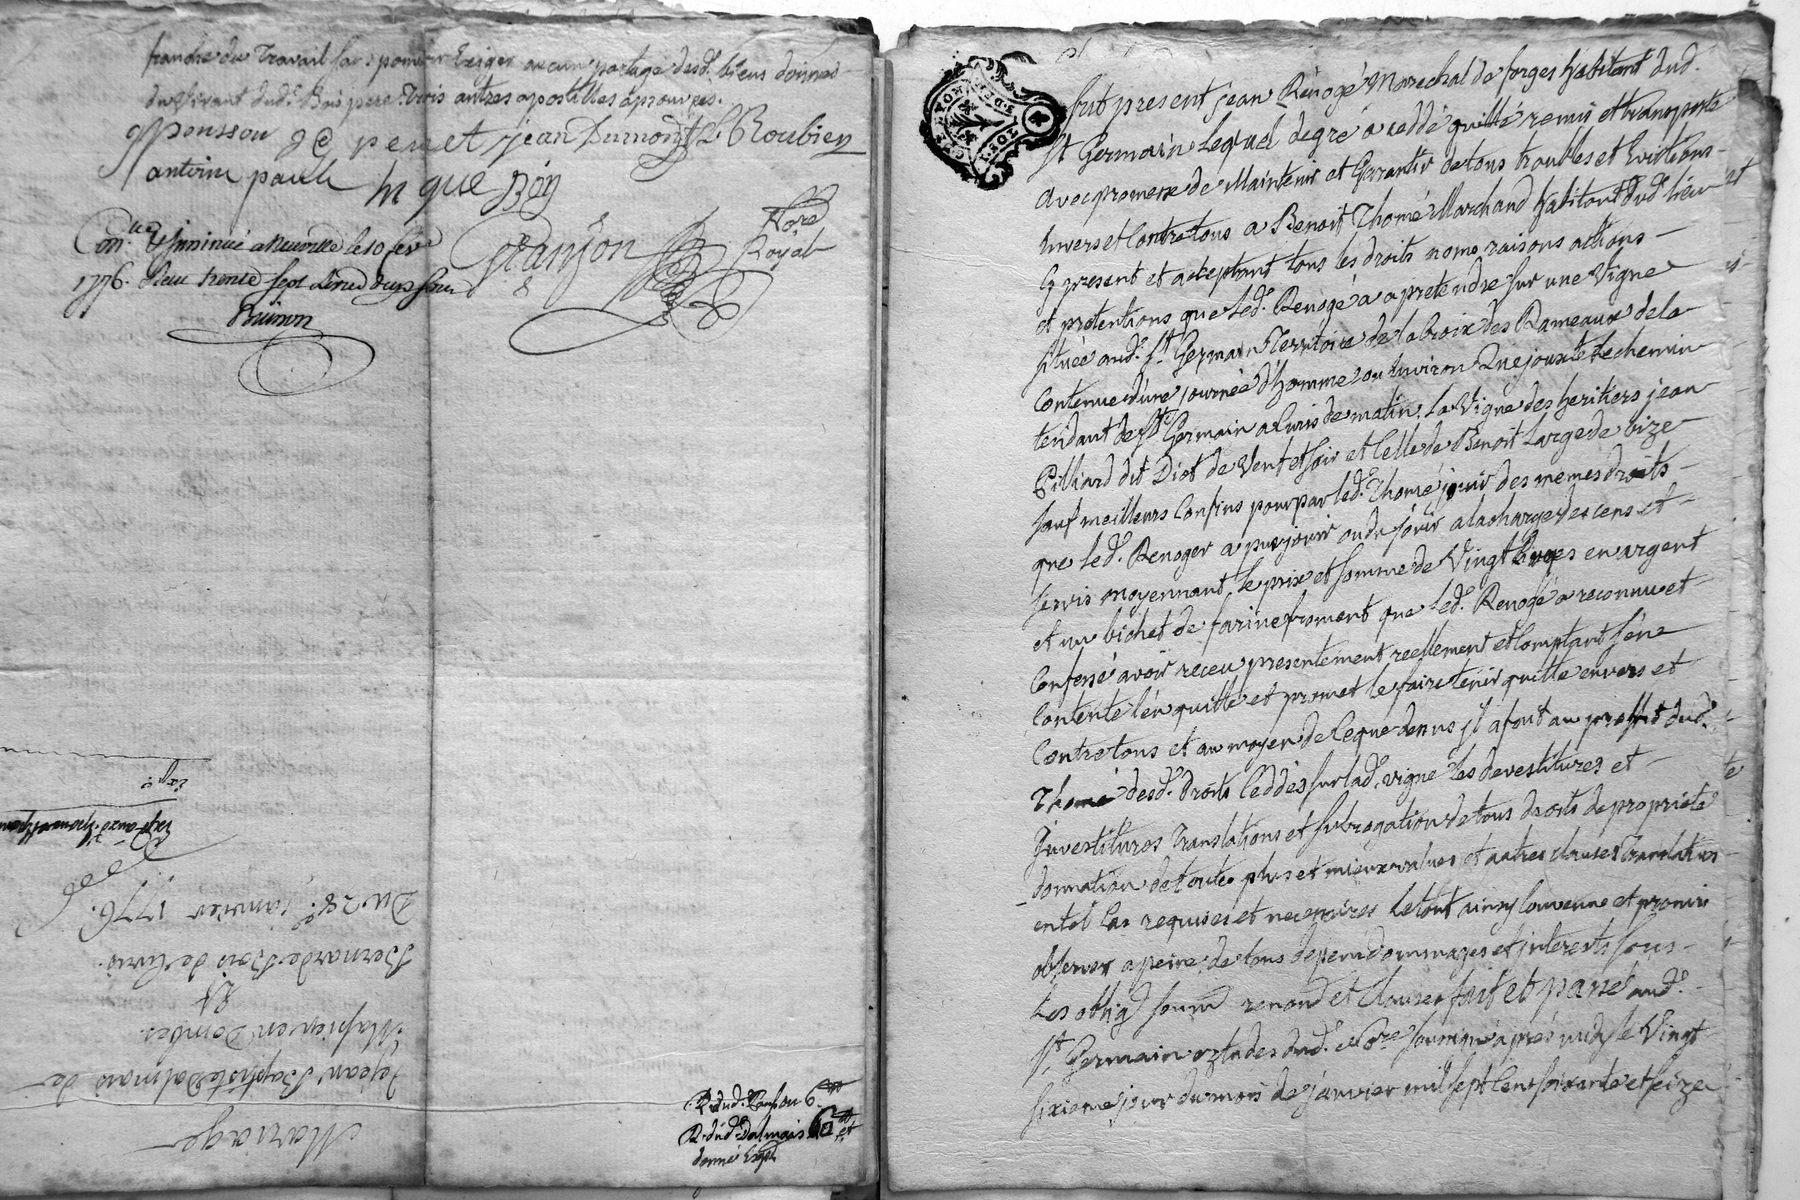 frandre du Travail sans pouvoir Exiger aucun partage desd. biens donnés
du vivant dud. Boi pere Trois autres apostilles aprouvées.
ponsson perret jean Dumont Roubien
antoine que Boy
Con.lle & Insinué a Neuville le 10 fev.er
1776. Reçu trente sept livres
Granjon Nore Royal
Mariage
Jean Baptiste Dalmais de
Massieux en Dombes
Et
Bernarde Bois de Curis.
Du 28.e janvier 1776.
Exp.e
R. dud. Ponson 6.tt
R. dud. Dalmais 60tt et
donné Exp.
fut present jean Rénogé Marechal de forges habitant dud.
St Germain Lequel de gré a ceddé quitté remis et transporté
avec promesse de Maintenir et Garantir de tous troubles et Evictions
Envers et Contre tous a Benoit Thomé Marchand habitant dud. lieu
Cy present et acceptant tous les droits noms raisons actions
et pretentions que led. Renogé a a pretendre sur une Vigne
située aud. St Germain Territoire de la Croix des Rameaux de la
Contenue d'une journée d'homme ou Environ Que jouxte le chemin
tendant de St Germain a Curis de matin, la Vigne des heritiers jean
Pilliard dit Diot de Vent et soir et Celle de Benoit Large de bize
sauf meilleurs Confins pour par led. Thomé jouir des memes droits
que led. Renoger a pu jouir ou du jouir a la charge des cens et
servis moyennant le prix et somme de Vingt livres en argent
et un bichet de farine froment que led. Renogé a reconnu et
Confessé avoir receu presentement reellement et Comptant s'en
Contente l'en quitte et promet le faire tenir quitte envers et
Contre tous et au moyen de Ce que dessus il a fait au proffit dud.
Thomé desd. Droits Ceddés sur lad. vigne les devestitures et
Investitures Translations et subrogation de tous droits de proprieté
donnation de toutes plus et mieux values et autres clauses Translatives
en tel Cas requises et necessaires Le tout ainsy Convenu et promis
observer a peine de tous depens dommages et interests sous
Les oblig. soum. renond. et Clauses fait et passé aud.
St Germain Etude dud. Nore soussigné après midy le Vingt
sixieme jour du mois de janvier mil sept Cent soixante et seize